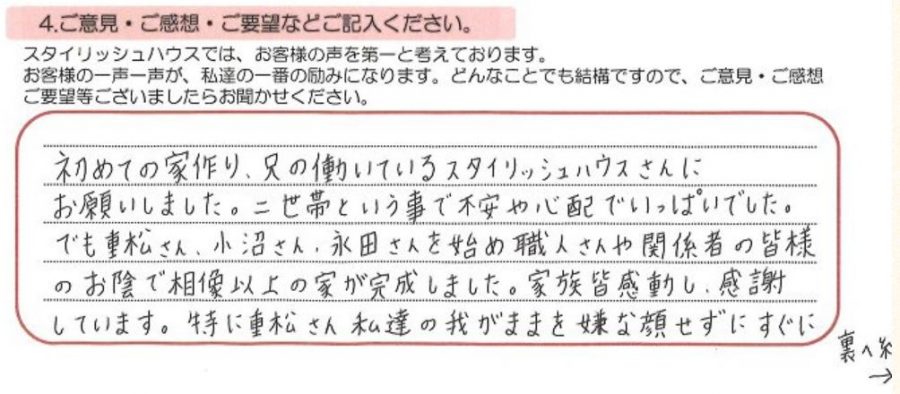 4.ご意見・ご感想・ご要望などご記入ください。
スタイリッシュハウスでは、お客様の声を第一と考えております。
お客様の一声一声が、私達の一番の励みになります。どんなことでも結構ですので、ご意見・ご感想
ご要望等ございましたらお聞かせください。
初めての家作り、兄の働いているスタイリッシュハウスさんに
お願いしました。二世帯という事で不安や心配でいっぱいでした。
でも重松さん、小沼さん、永田さんを始め職人さんや関係者の皆様
のお陰で相像以上の家が完成しました。家族皆感動し、感謝
しています。特に重松さん私達の我がままを嫌な顔せずにすぐに
裏へ
→